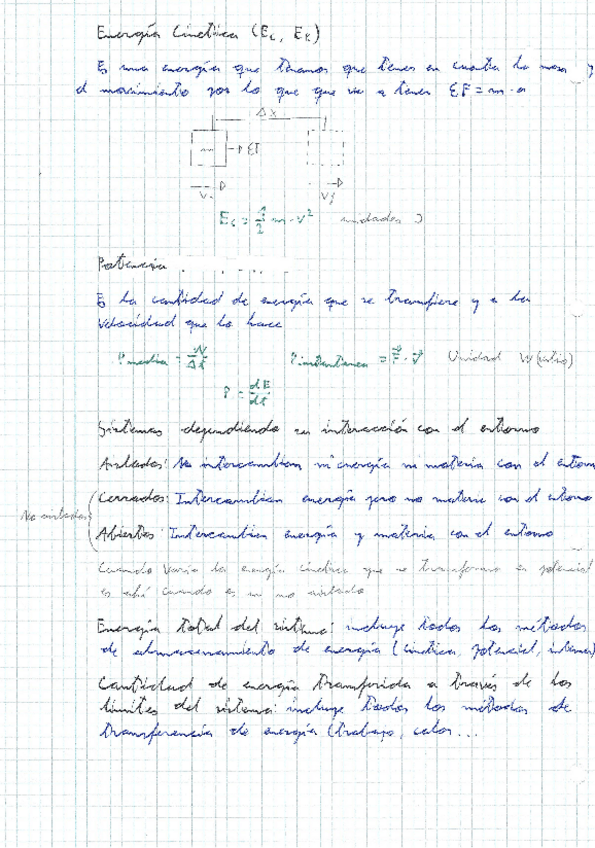 Energía Cinética (Ec, Ek)
Es una energía que tenemos que tener en cuenta la masa y
el movimiento por lo que que va a tener ΣF = m·a
Δx
m ΣF
V. Vf
Ec = 1/2 m·v² unidades J
Potencia
Es la cantidad de energía que se transfiere y a la
velocidad que lo hace
P media = W/Δt P instantánea = F·v Unidad W (vatio)
P = dE/dt
Sistemas dependiendo su interacción con el entorno
Aislados: No intercambian ni energía ni materia con el entorno
Cerrados: Intercambian energía pero no materia con el entorno
No aislados
Abiertos: Intercambian energía y materia con el entorno
Cuando varía la energía cinética que no transforma en potencial
es ahí cuando es un no aislado
Energía total del sistema: incluye todos los métodos
de almacenamiento de energía (cinética, potencial, interna)
Cantidad de energía transferida a través de los
límites del sistema: incluye todos los métodos de
transferencia de energía (trabajo, calor...